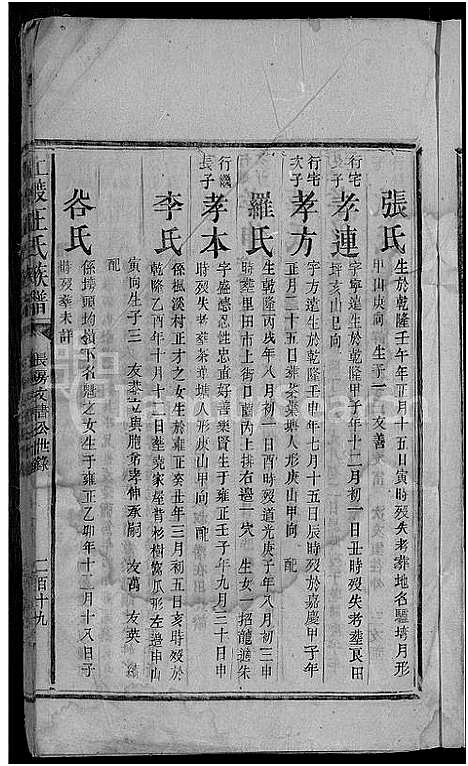 張氏 生於乾隆壬午年正月十五日寅時殁失考葬地名驢塆月形
甲山庚向 生子一 友善
行宅 孝連 字寧遠生於乾隆甲子年十二月初一日丑時殁失考葬艮田
坪亥山巳向
行宅 次子 孝方 字方遠生於乾隆壬申年七月十五日辰時殁於嘉慶甲子年
正月二十五日葬茶葉塘人形庚山甲向 配
羅氏 生於乾隆丙戌年八月初一日酉時殁道光庚子年八月初三申
時葬里田市上排右邊一穴 生女一 招龍適朱
行 長子 孝本 字盛德忠性忠直好善樂賢生于雍正壬子年九月三十日申
時殁失考葬茶葉塘人形庚山甲向 配
李氏 係楓溪村正才之女生於雍正癸丑年三月初五日亥時殁於
乾隆乙酉年十月十三日葬堯家屋背杉樹窩瓜形左邊申山
寅向生子三 友 立與胞弟孝伸承嗣 友萬 友英 續
配
谷氏 係塆頭坳嶺下名魁之女生于雍正乙卯年十二月十八日子
時殁葬未詳
王氏族譜
長房文書公世錄
二百十九